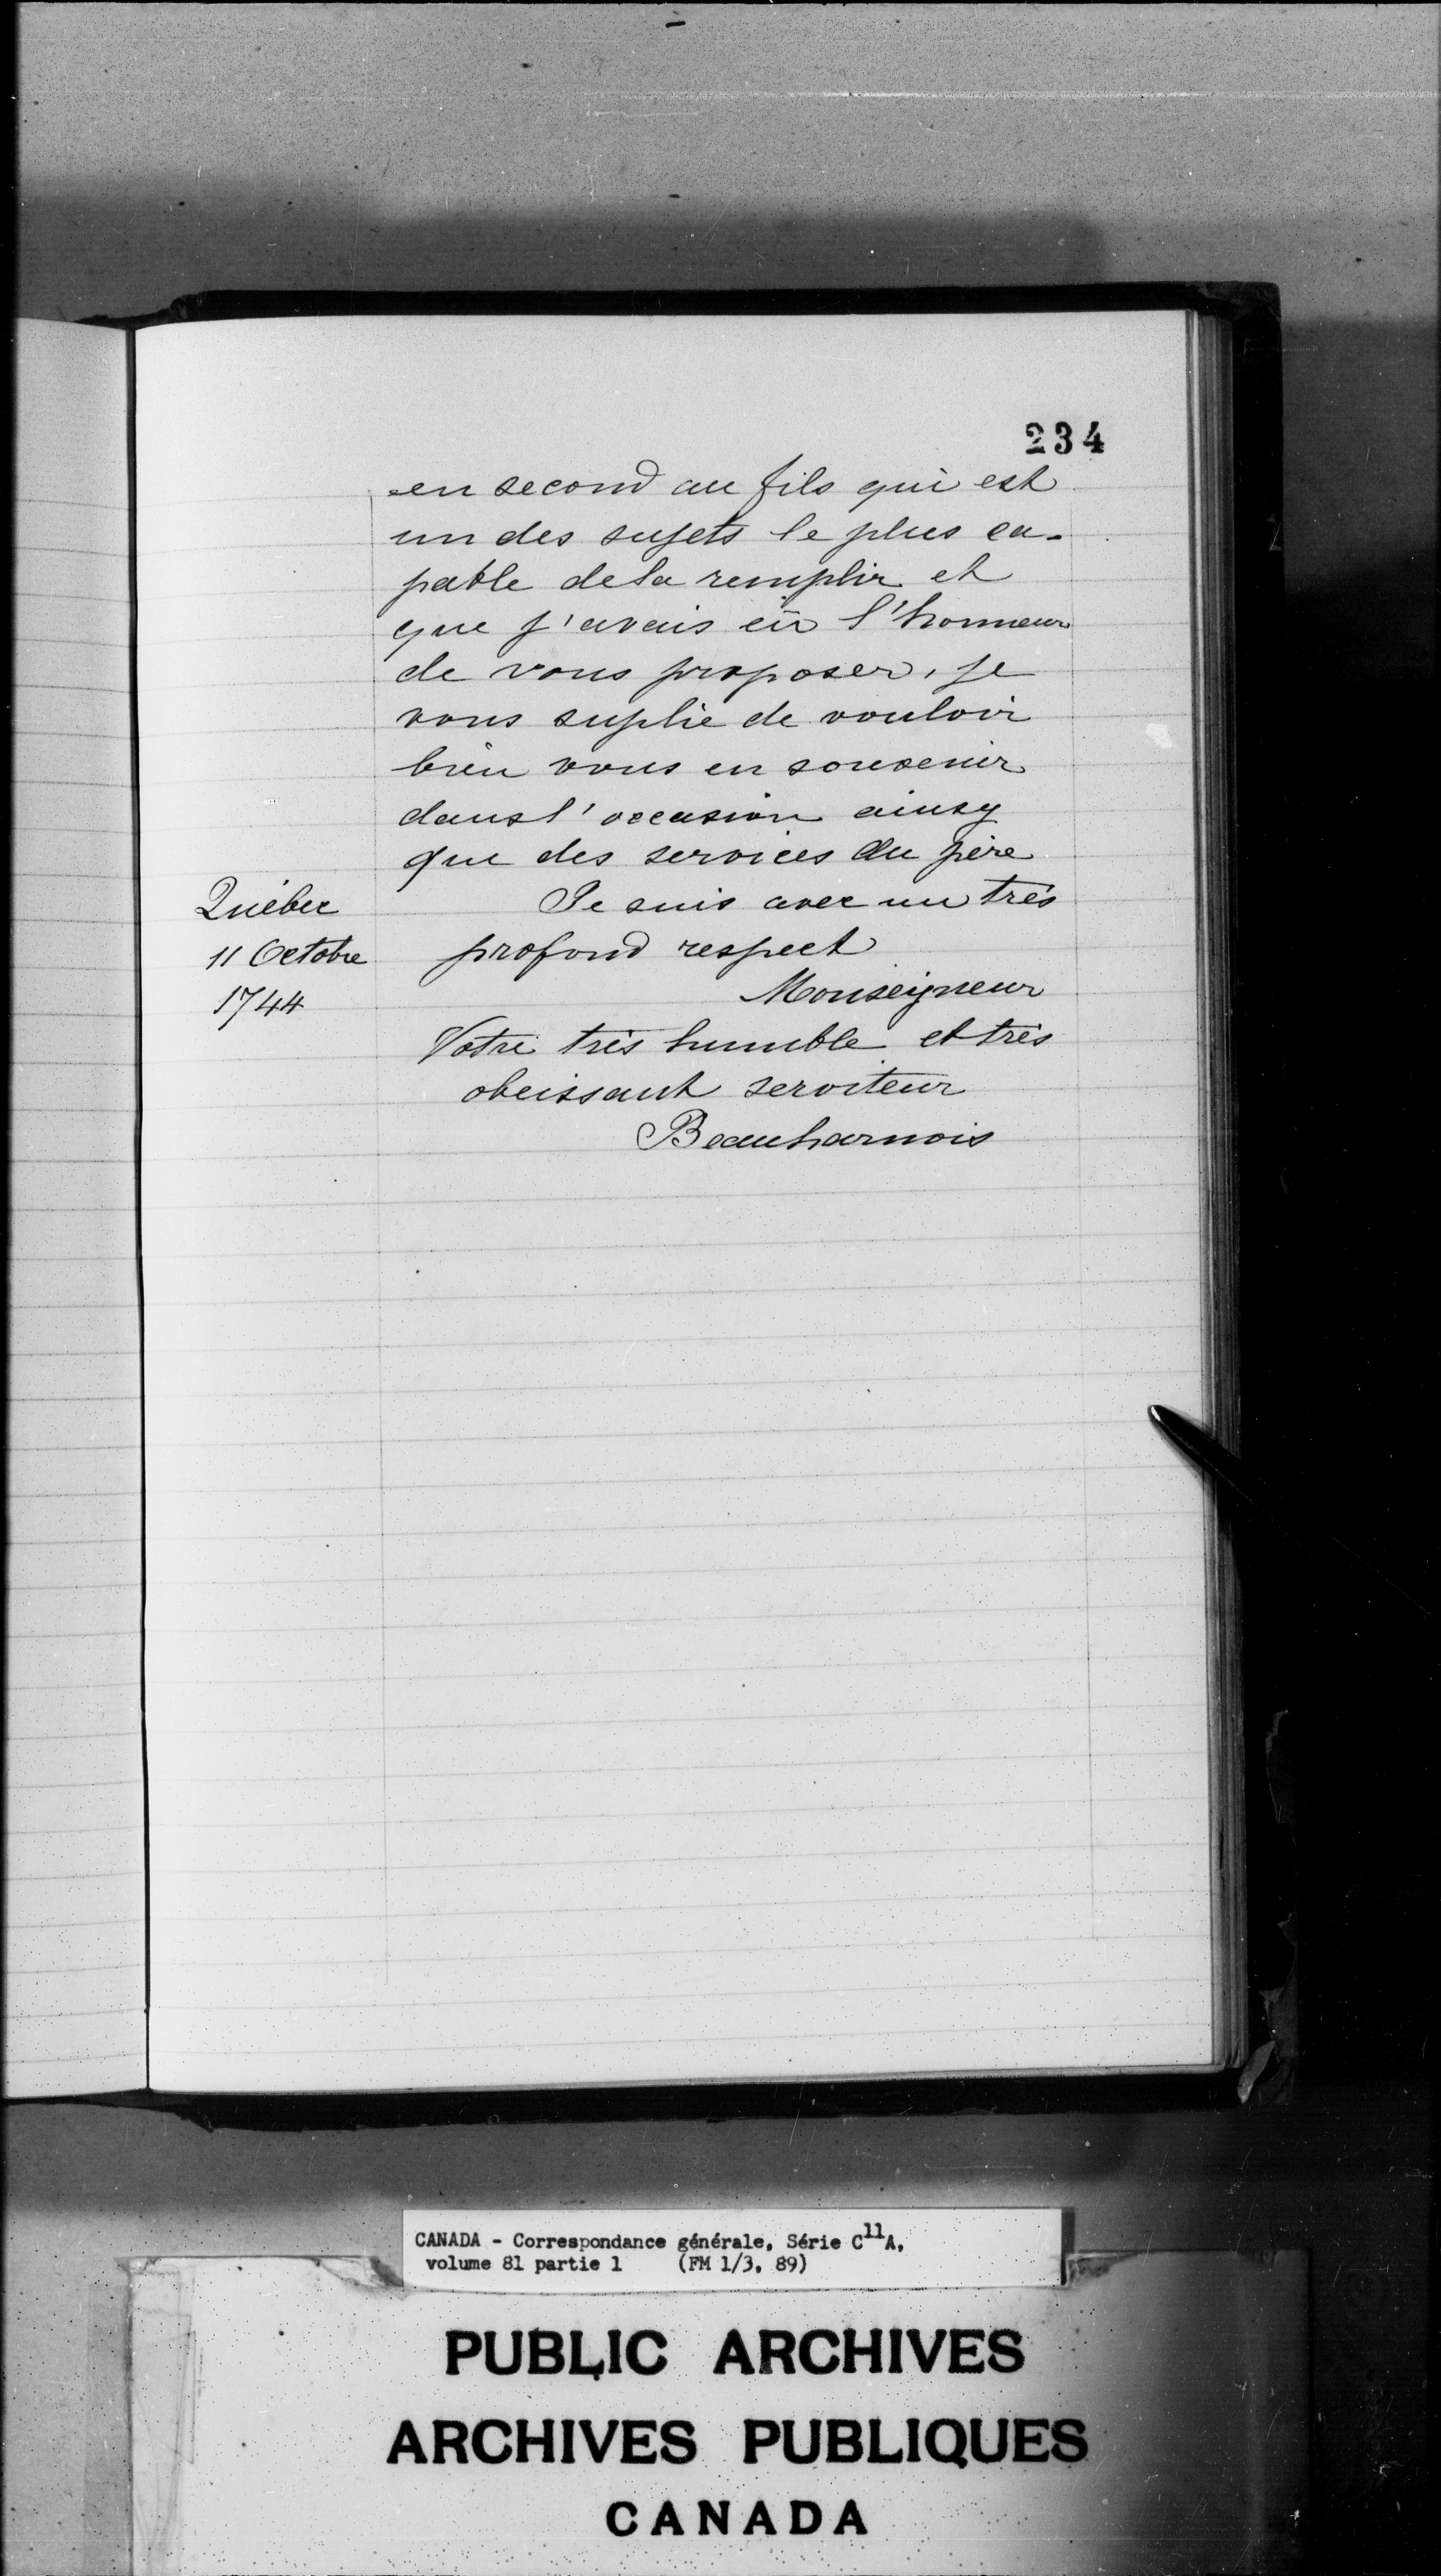 234
en second au fils qui est
un des sujets le plus ca-
pable de la remplir et
que j'avais eü l'honneur
de vous proposer, je
vous suplie de vouloir
bien vous en souvenir
dans l'occasion ainsy
que des services du père
Québec
11 Octobre
1744
Je suis avec un très
profond respect
Monseigneur
Votre très humble et très
obeissant serviteur
Beauharnois
CANADA - Correspondance générale, Série C11A,
volume 81 partie 1 (FM 1/3, 89)
PUBLIC ARCHIVES
ARCHIVES PUBLIQUES
CANADA